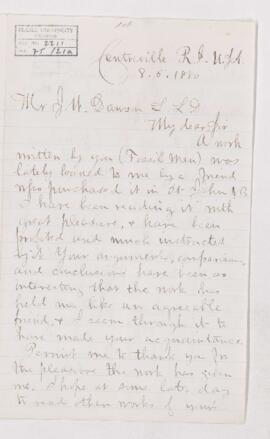 McGILL UNIVERSITY
ARCHIVES
ACC. NO. 2211
REF. 75/121a
Centreville R. I. U.S.A.
8. 5. 1880
Mr J. W. Dawson L L D
My dear Sir
A work
written by you (Fossil Men) was
lately loaned to me by a friend
who purchased it in St. John NB
I have been reading it with
great pleasure, & have been
profited and much instructed
by it. Your arguments, comparisons,
and conclusions have been so
interesting that the work has
held me like an agreeable
friend, & I seem through it to
have made your acquaintance.
Permit me to thank you for
the pleasure the work has given
me. I hope at some later day
to read other works of yours